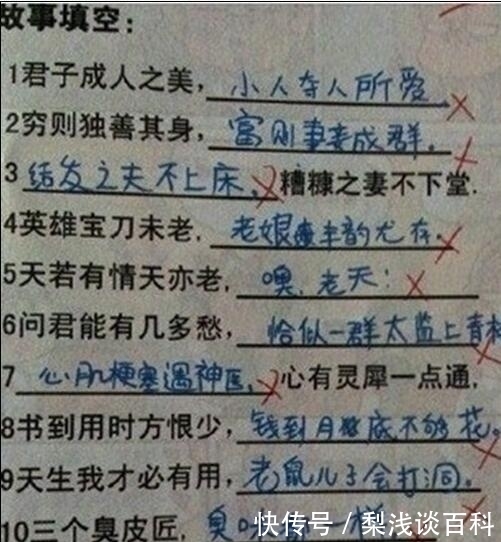 故事填空：
1君子成人之美，小人夺人所爱。
2穷则独善其身，富则妻妾成群。
3结发之夫不上床，糟糠之妻不下堂.
4英雄宝刀未老，老娘丰韵尤存。
5天若有情天亦老，噢，老天！
6问君能有几多愁，恰似一群太监上青
7心肌梗塞遇神医，心有灵犀一点通，
8书到用时方恨少，钱到月底不够花。
9天生我才必有用，老鼠儿子会打洞。
10三个臭皮匠，臭
快传号 / 梨浅谈百科